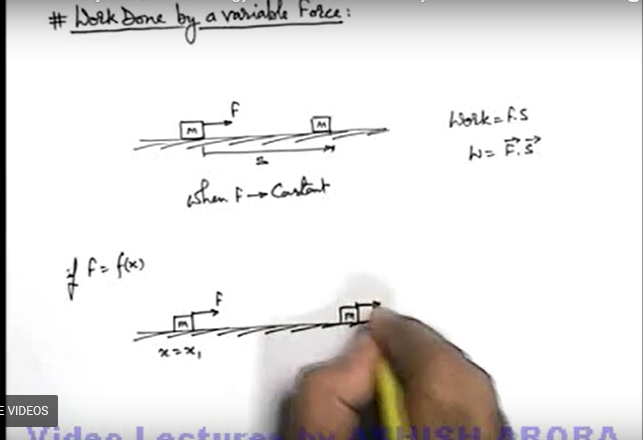 # Work Done by a variable Force:
F
M M
Work = F.S
S
W = F⃗.S⃗
when F → Constant
if F = f(x)
F
M M
x = x₁
E VIDEOS
Video Lectures by ASHISH ARORA